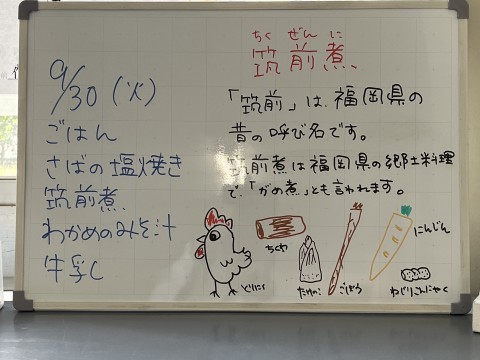 9/30(火)
ごはん
さばの塩焼き
筑前煮
わかめのみそ汁
牛乳
ちくぜんに
筑前煮
「筑前」は、福岡県の
昔の呼び名です。
筑前煮は福岡県の郷土料理
で、「がめ煮」とも言われます。
とりにく
ちくわ
たけのこ
ごぼう
にんじん
ねじりこんにゃく